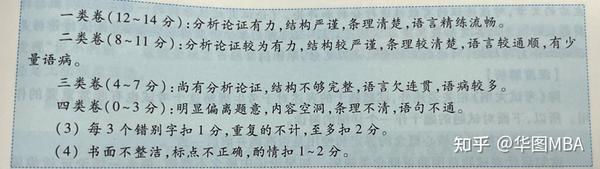 一类卷(12~14分):分析论证有力,结构严谨,条理清楚,语言精练流畅。
二类卷(8~11分):分析论证较为有力,结构较严谨,条理较清楚,语言较通顺,有少
量语病。
三类卷(4~7分):尚有分析论证,结构不够完整,语言欠连贯,语病较多。
四类卷(0~3分):明显偏离题意,内容空洞,条理不清,语句不通。
(3) 每3个错别字扣1分,重复的不计,至多扣2分。
(4) 书面不整洁,标点不正确,酌情扣1~2分。
知乎 @华图MBA